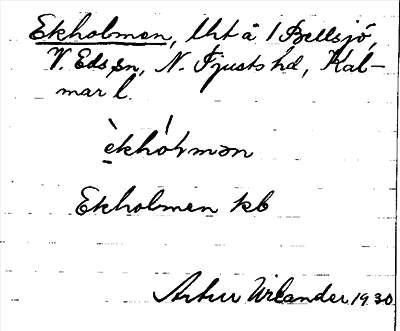 Ekholmen, Urt å 1 Bellsjö,
V. Eds sn, N. Tjusts hd, Kal-
mar l.
èkhólmən
Ekholmen kb
Artur Wilander 1930